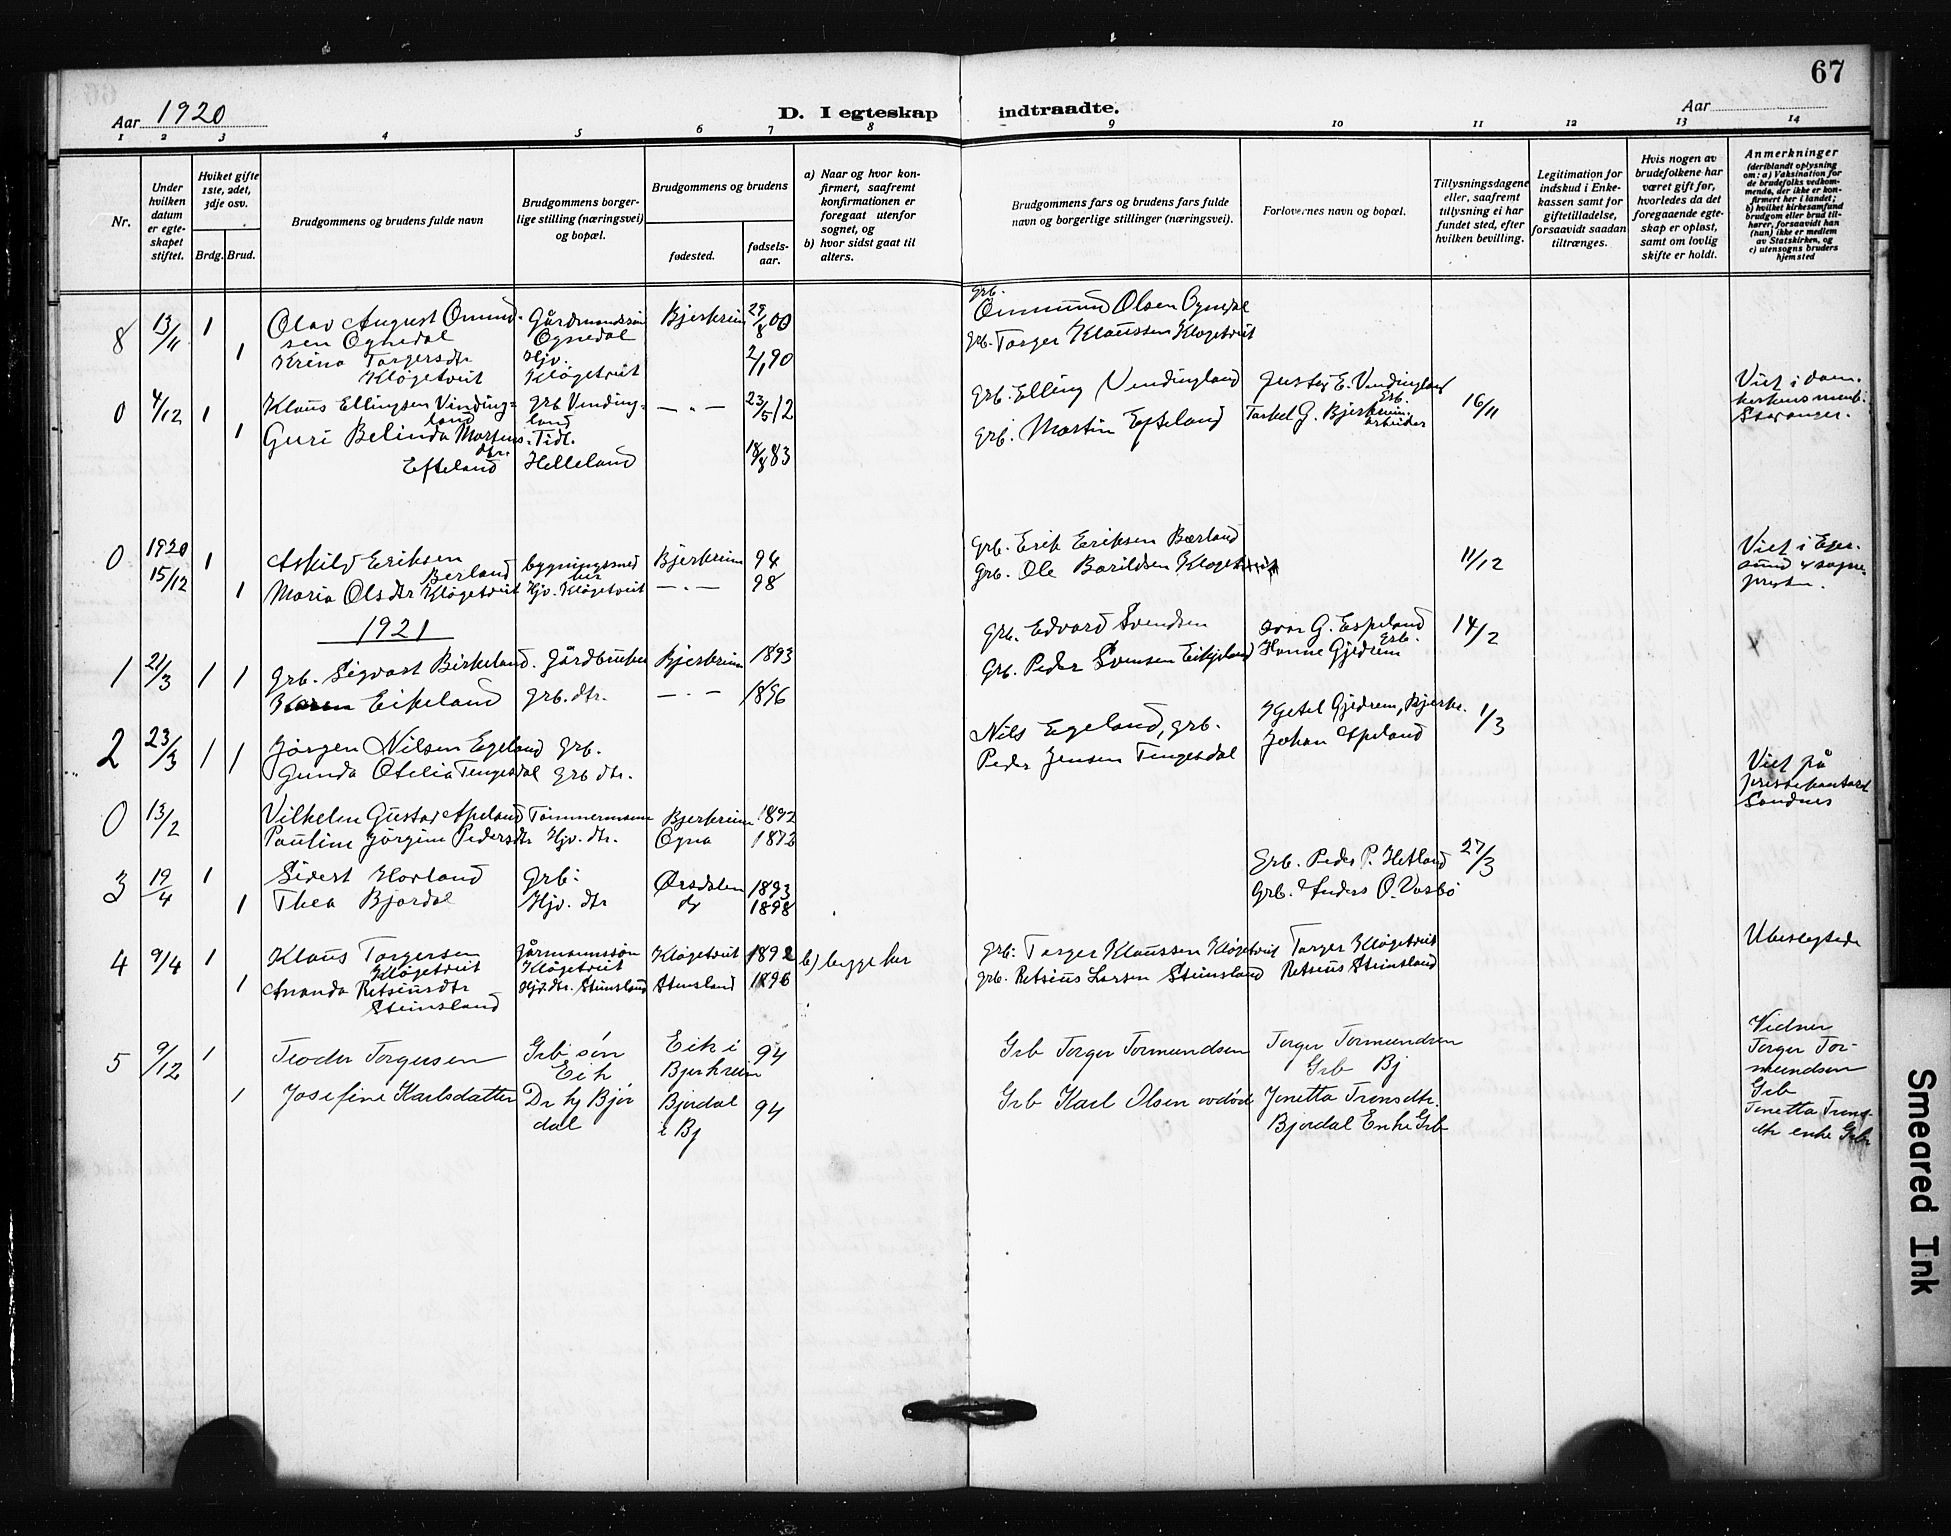 67
Aar 1920
D. I egteskap indtraadte.
Aar
1 2 3 4 5 6 7 8 9 10 11 12 13 14
Nr.
Under hvilken datum er egteskapet stiftet.
Hviket gifte 1ste, 2det, 3dje osv.
Brdg. Brud.
Brudgommens og brudens fulde navn
Brudgommens borgerlige stilling (næringsvei) og bopæl.
Brudgommens og brudens
fødested.
fødselsaar.
a) Naar og hvor konfirmert, saafremt konfirmationen er foregaat utenfor sognet, og
b) hvor sidst gaat til alters.
Brudgommens fars og brudens fars fulde navn og borgerlige stillinger (næringsvei).
Forlovernes navn og bopæl.
Tillysningsdagene eller, saafremt tillysning ei har fundet sted, efter hvilken bevilling.
Legitimation for indskud i Enkekassen samt for giftetilladelse, forsaavidt saadan tiltrænges.
Hvis nogen av brudefolkene har været gift før, hvorledes da det foregaaende egteskap er opløst, samt om lovlig skifte er holdt.
Anmerkninger
(deriblandt oplysning om: a) Vaksination for de brudefolks vedkommende, der ikke er konfirmert her i landet; b) hvilket kirkesamfund brudgom eller brud tilhører, forsaavidt han (hun) ikke er medlem av Statskirken, og c) utensogns bruders hjemsted
8 13/11 1 Olav August Omund- Gårdmandssøn Bjerkreim 29/8 00 grb. Ommund Olsen Ognedal
sen Ognedal Ognedal grb. Torger Klaussen Kløgetveit
1 Krina Torgersdtr Hjv. 2/1 90
Kløgetveit Kløgetveit
0 4/12 1 Klaus Ellingsen Vinding= grb Vinding= — „ — 23/5 12 grb. Elling Vindingland Gustav E. Vindingland grb. 16/11 Viet i dom-
land land Torkel G. Bjerkreim arbeider kirkens menh.
1 Guri Belinda Martins- Tidl. grb. Martin Efteland Stavanger.
dtr. Efteland Helleland 18/8 83
0 1920 15/12 1 Askild Eriksen bygningssmed Bjerkreim 94 grb. Erik Eriksen Bærland 11/12 Viet i Eger-
Berland her sund av sogne-
1 Maria Olsdtr Kløgetveit Hjv. Kløgetveit — „ — 98 grb. Ole Bårildsen Kløgetveit presten.
1921
1 21/3 1 1 grb. Sigvart Birkeland. Gårdbruker Bjerkreim 1893 grb. Edvard Svendsen Ivar G. Espeland grb. 14/2
Karen Eikeland grb. dtr. — „ — 1896 grb. Peder Svensen Eikeland Hanne Gjedrem
2 23/3 1 1 Jørgen Nilsen Egeland grb. Nils Egeland, grb. Ketel Gjedrem, Bjerkr. 1/3
Gunda Otelia Tengesdal grb dtr. Peder Jensen Tengesdal Johan Apeland
0 13/2 Vilhelm Gustav Apeland Tømmermann Bjerkreim 1892 Viet på
Pauline Jørgine Pedersdtr Hjv. dtr. Ogna 1873 prestekontoret
Sandnes
3 19/4 1 Sivert Hovland grb: Ørsdalen 1893 Grb. Peder P. Hetland 27/3
1 Thea Bjordal Hjv. dtr do 1898 Grb. Anders O. Vasbø
4 9/4 1 Klaus Torgersen Gårmannssøn Kløgetveit 1892 b) begge her grb: Torger Klaussen Kløgetveit Torger Kløgetveit Ubeslegtede
Kløgetveit Kløgetveit
1 Ananda Retsiusdtr Hjv. dtr. Stensland Stensland 1896 grb. Retsius Larsen Steinsland Retsius Steinsland
Steinsland
5 9/12 1 Teodor Torgersen Grb søn Eik i 94 Grb Torger Tormundsen Torger Tormundsen Vidner
Eik Bjerkreim Grb Bj Torger Tor-
mundsen
1 Josefine Karlsdatter Dr hj Bjør Bjørdal 94 Grb Karl Olsen avdød Jenetta Tronsdtr. Grb
dal i Bj Bjordal Enke Grb Jenetta Trons-
dtr enke Grb
Smeared Ink